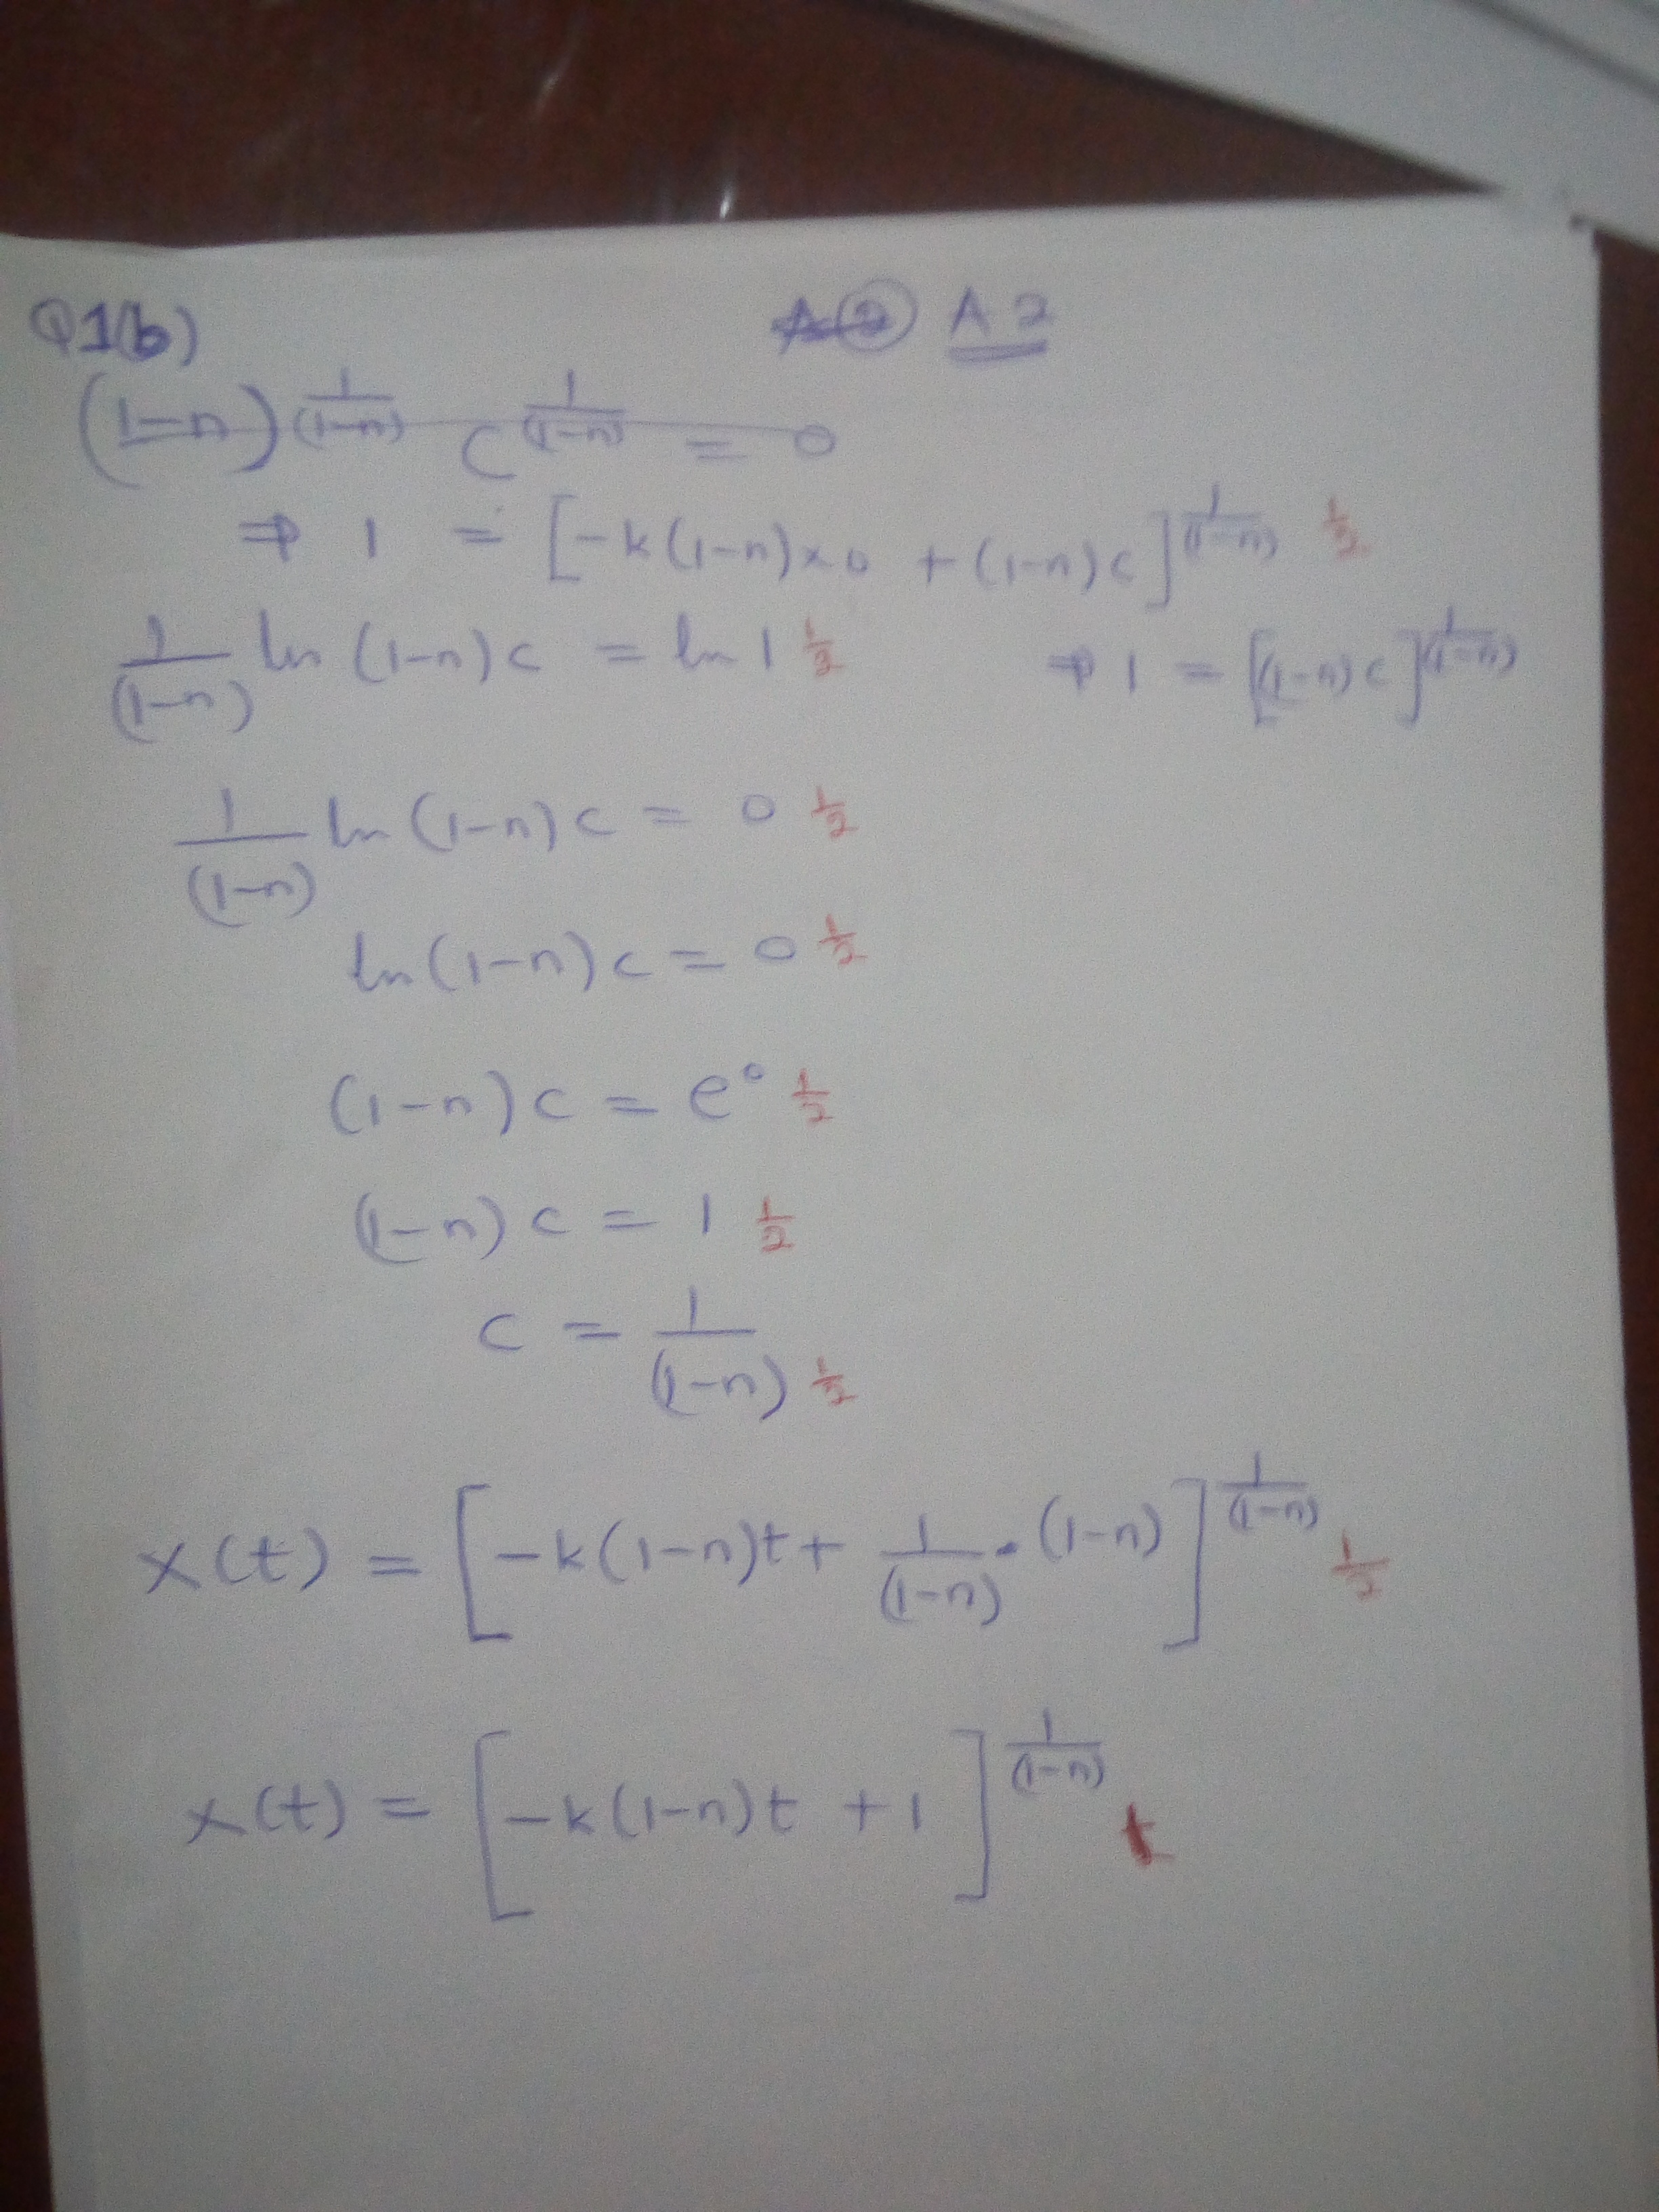 Q1(b) A2 A2
(1-n)^{\frac{1}{(1-n)}} c^{\frac{1}{(1-n)}} = 0
⇒ 1 = [-k(1-n)×0 + (1-n)c]^{\frac{1}{(1-n)}} \frac{1}{2}
\frac{1}{(1-n)} ln (1-n)c = ln 1 \frac{1}{2} ⇒ 1 = [(1-n)c]^{\frac{1}{(1-n)}}
\frac{1}{(1-n)} ln (1-n)c = 0 \frac{1}{2}
ln(1-n)c = 0 \frac{1}{2}
(1-n)c = e^0 \frac{1}{2}
(1-n)c = 1 \frac{1}{2}
c = \frac{1}{(1-n)} \frac{1}{2}
x(t) = [-k(1-n)t + \frac{1}{(1-n)} · (1-n)]^{\frac{1}{(1-n)}} \frac{1}{2}
x(t) = [-k(1-n)t + 1]^{\frac{1}{(1-n)}}